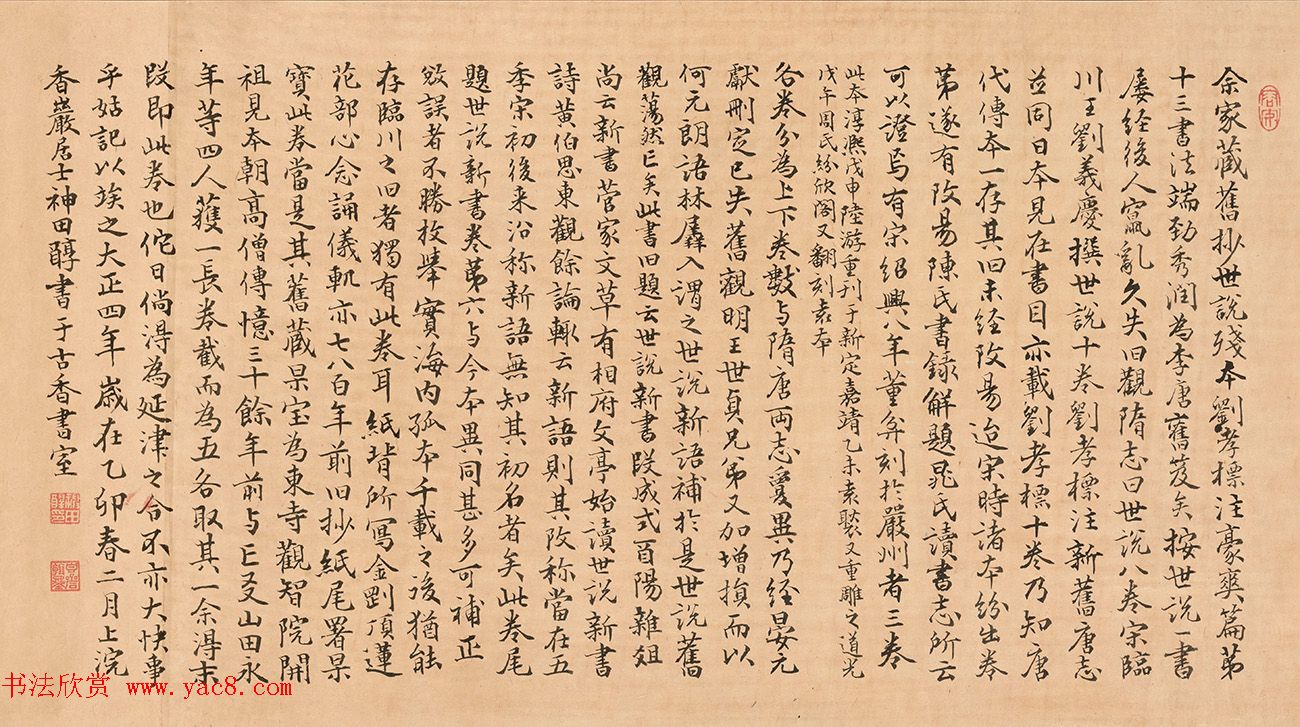 余家藏舊抄世説殘本劉孝標注豪爽篇第
十三書法端勁秀潤為李唐舊笈矣按世説一書
屢經後人竄亂久失旧觀隋志曰世説八卷宋臨
川王劉義慶撰世説十卷劉孝標注新舊唐志
並同日本見在書目亦載劉孝標十卷乃知唐
代傳本一存其旧未經改易迨宋時諸本紛出卷
第遂有改易陳氏書錄解題晁氏讀書志所云
可以證焉有宋紹興八年董弅刻於嚴州者三卷
此本淳熙戊申陸游重刊于新定嘉靖乙未袁褧又重雕之道光
戊午周氏紛欣閣又翻刻袁本
各卷分為上下卷數与隋唐両志夐異乃經晏元
獻刪定已失舊觀明王世貞兄弟又加增損而以
何元朗語林羼入謂之世説新語補於是世説舊
觀蕩然亡矣此書旧題云世説新書段成式酉陽雜俎
尚云新書菅家文草有相府文亭始讀世説新書
詩黄伯思東觀餘論輙云新語則其改称當在五
季宋初後来沿称新語無知其初名者矣此卷尾
題世説新書卷第六与今本異同甚多可補正
敓誤者不勝枚舉實海内孤本千載之後猶能
存臨川之旧者獨有此卷耳紙背所寫金剴頂蓮
花部心念誦儀軌亦七八百年前旧抄紙尾署杲
寳此卷當是其舊藏杲宝為東寺觀智院開
祖見本朝高僧傳憶三十餘年前与亡友山田永
年等四人獲一長卷截而為五各取其一余淂末
段即此卷也佗日倘淂為延津之合不亦大快事
乎姑記以埃之大正四年歳在乙卯春二月上浣
香巖居士神田醇書于古香書室
书法欣赏 www.yac8.com